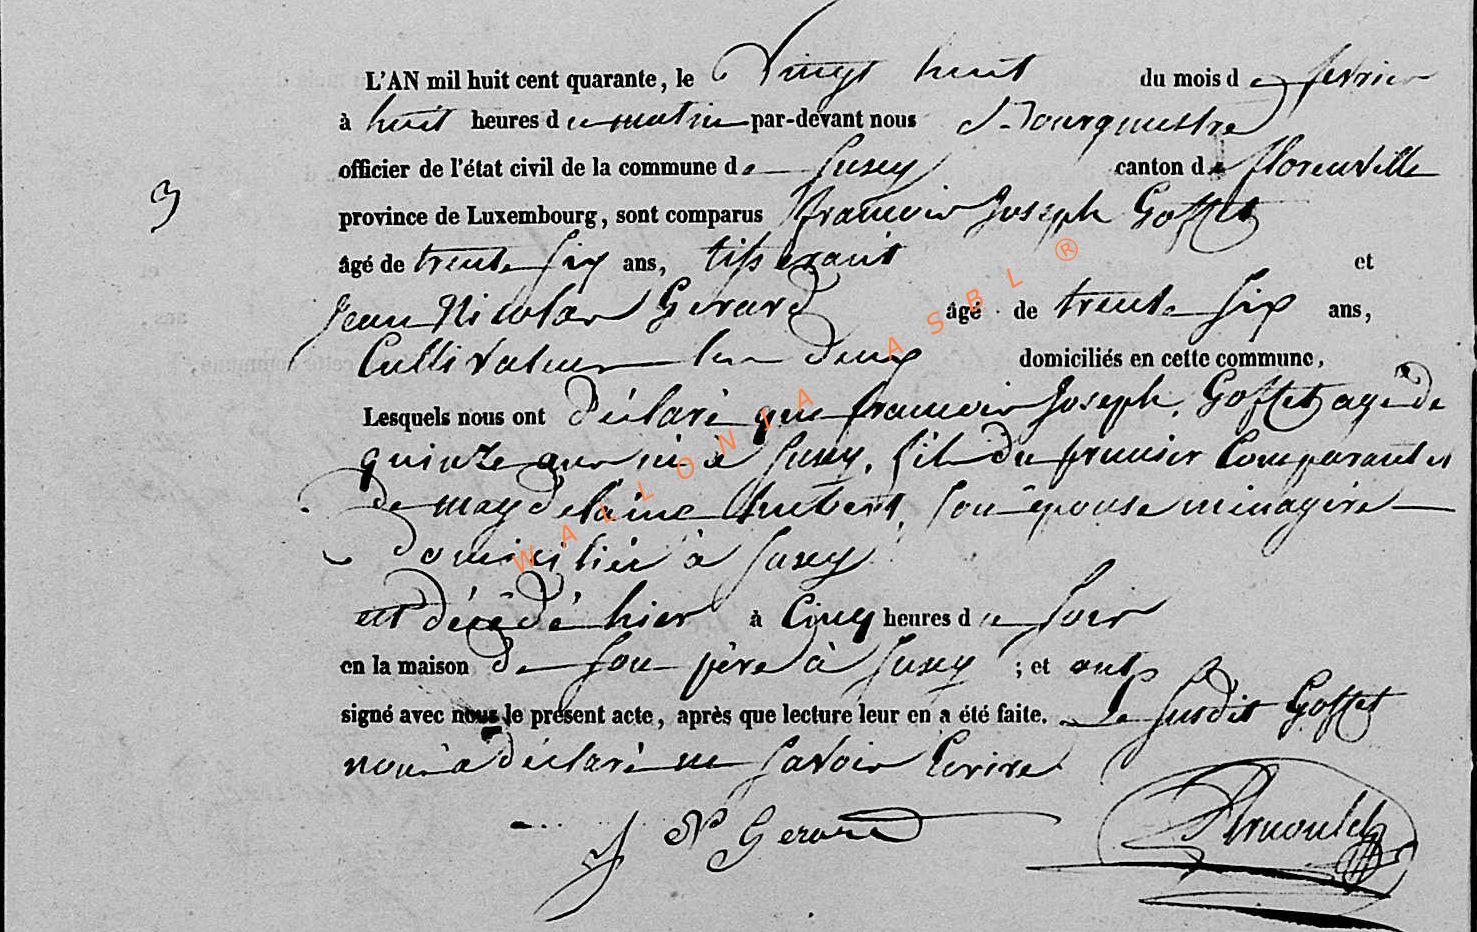 L'AN mil huit cent quarante, le Vingt huit du mois de fevrier
à huit heures du matin par-devant nous Bourgmestre
officier de l'état civil de la commune de Suxy canton de florenville
3
province de Luxembourg, sont comparus francois Joseph Goffet
âgé de trente six ans, tisserant et
Jean Nicolas Gerard âgé de trente six ans,
Cultivateur les deux domiciliés en cette commune,
Lesquels nous ont déclaré que francois Joseph Goffet agé de
quinze ans né à Suxy, fils du premier Comparant et
de magdelaine hubert, son épouse ménagère
domiciliée à Suxy
est décédé hier à Cinq heures du soir
en la maison de son père à Suxy ; et ont
signé avec nous le présent acte, après que lecture leur en a été faite. Le susdit Goffet
nous a déclaré ne savoir Ecrire
J N Gerard
WALLONIA ASBL ®